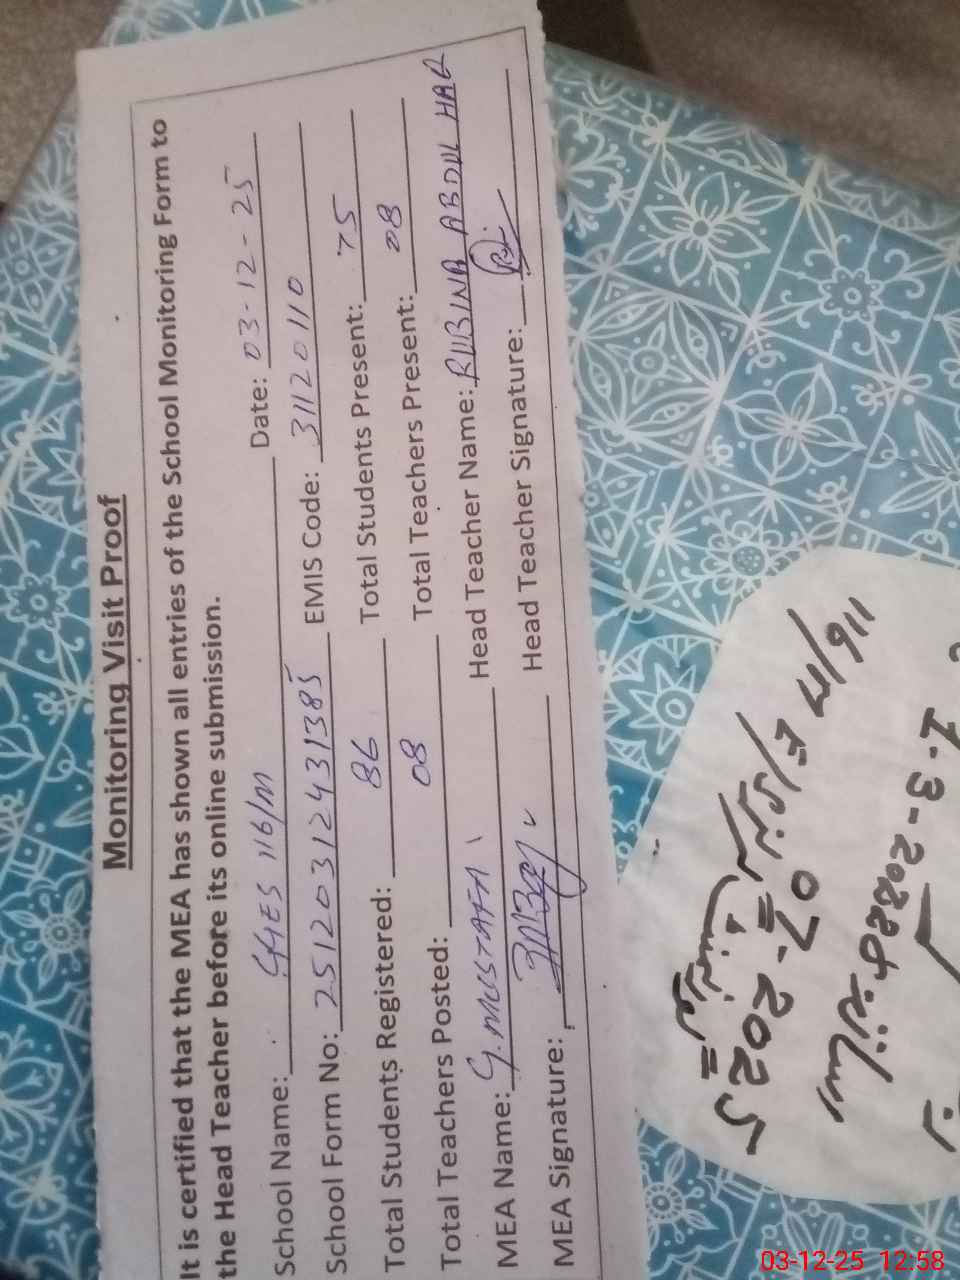 Monitoring Visit Proof
It is certified that the MEA has shown all entries of the School Monitoring Form to
the Head Teacher before its online submission.
School Name: GGES 116/M Date: 03-12-25
School Form No: 2512031243 1385 EMIS Code: 31120110
Total Students Registered: 86 Total Students Present: 75
Total Teachers Posted: 08 Total Teachers Present: 08
MEA Name: G. MUSTAFA Head Teacher Name: RUBINA ABDUL HAQ
MEA Signature: Head Teacher Signature:
116/M
07-2025
1-3-2028
03-12-25 12:58